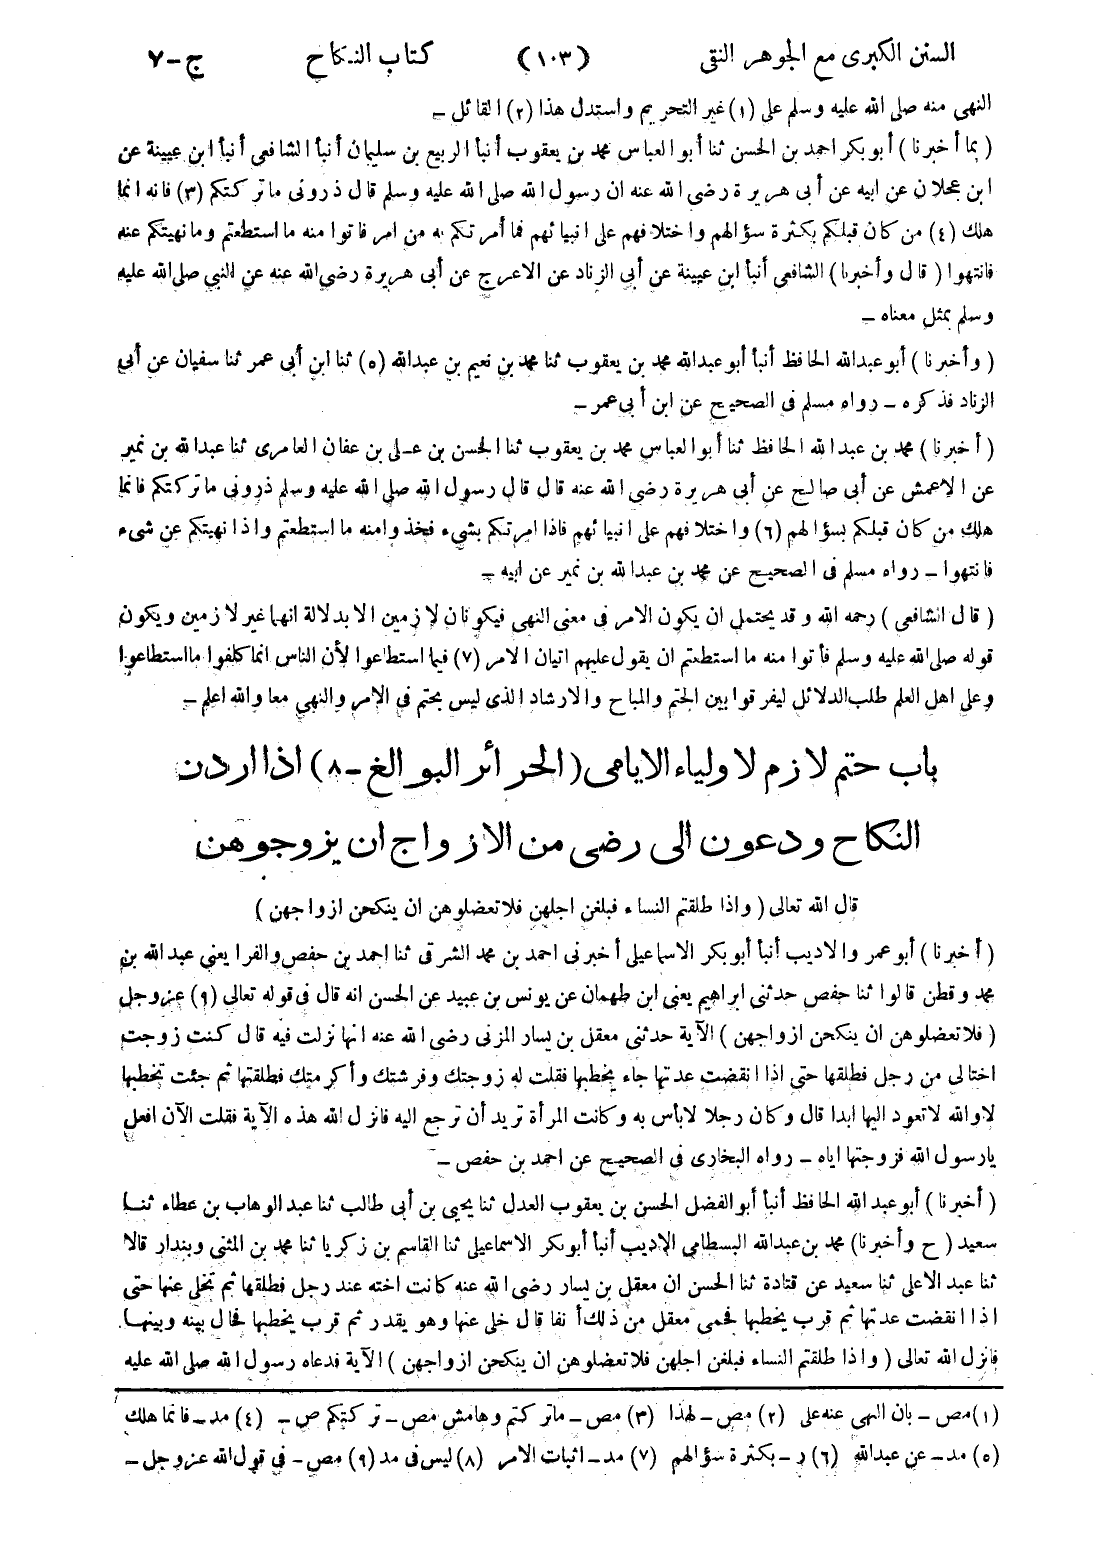 السنن الكبرى مع الجوهر النقى (١٠٣) كتاب النكاح ج-٧
النهى منه صلى الله عليه وسلم على (١) غير التحريم واستدل هذا (٢) القائل ـ
( بما أخبرنا ) أبو بكر احمد بن الحسن ثنا أبو العباس محمد بن يعقوب أنبأ الربيع بن سليمان أنبأ الشافعى أنبأ ابن عيينة عن
ابن عجلان عن ابيه عن أبى هريرة رضى الله عنه ان رسول الله صلى الله عليه وسلم قال ذرونى ما تركتكم (٣) فانه انما
هلك (٤) من كان قبلكم بكثرة سؤالهم واختلافهم على انبيائهم فما أمرتكم به من امر فاتوا منه ما استطعتم وما نهيتكم عنه
فانتهوا ( قال وأخبرنا ) الشافعى أنبأ ابن عيينة عن أبى الزناد عن الاعرج عن أبى هريرة رضى الله عنه عن النبي صلى الله عليه
وسلم بمثل معناه ـ
( وأخبرنا ) أبو عبدالله الحافظ أنبأ أبو عبدالله محمد بن يعقوب ثنا محمد بن نعيم بن عبدالله (٥) ثنا ابن أبى عمر ثنا سفيان عن أبى
الزناد فذكره ـ رواه مسلم فى الصحيح عن ابن أبى عمر ـ
( أخبرنا ) محمد بن عبدالله الحافظ ثنا أبو العباس محمد بن يعقوب ثنا الحسن بن على بن عفان العامرى ثنا عبدالله بن نمير
عن الاعمش عن أبى صالح عن أبى هريرة رضى الله عنه قال قال رسول الله صلى الله عليه وسلم ذرونى ما تركتكم فانما
هلك من كان قبلكم بسؤالهم (٦) واختلافهم على انبيائهم فاذا امرتكم بشىء فخذوا منه ما استطعتم واذا نهيتكم عن شىء
فانتهوا ـ رواه مسلم فى الصحيح عن محمد بن عبدالله بن نمير عن ابيه ـ
( قال الشافعى ) رحمه الله وقد يحتمل ان يكون الامر فى معنى النهى فيكونان لازمين الا بدلالة انهما غير لازمين ويكون
قوله صلى الله عليه وسلم فأتوا منه ما استطعتم ان يقول عليهم اتيان الامر (٧) فيما استطاعوا لأن الناس انما كلفوا ما استطاعوا
وعلى اهل العلم طلب الدلائل ليفرقوا بين الحتم والمباح والارشاد الذى ليس بحتم فى الامر والنهى معا والله اعلم ـ
باب حتم لازم لاولياء الايامى ( الحرائر البوالغ -٨) اذا اردن
النكاح ودعون الى رضى من الازواج ان يزوجوهن
قال الله تعالى ( واذا طلقتم النساء فبلغن اجلهن فلا تعضلوهن ان ينكحن ازواجهن )
( أخبرنا ) أبو عمر والاديب أنبأ أبو بكر الاسماعيلى أخبرنى احمد بن محمد الشرقى ثنا احمد بن حفص والفرا يعنى عبدالله بن
محمد وقطن قالوا ثنا حفص حدثنى ابراهيم يعنى ابن طهمان عن يونس بن عبيد عن الحسن انه قال فى قوله تعالى (٩) عز وجل
( فلا تعضلوهن ان ينكحن ازواجهن ) الآية حدثنى معقل بن يسار المزنى رضى الله عنه انها نزلت فيه قال كنت زوجت
اختا لى من رجل فطلقها حتى اذا انقضت عدتها جاء يخطبها فقلت له زوجتك وفرشتك وأكرمتك فطلقتها ثم جئت تخطبها
لا والله لا تعود اليها ابدا قال وكان رجلا لا بأس به وكانت المرأة تريد أن ترجع اليه فانزل الله هذه الآية فقلت الآن افعل
يا رسول الله فزوجتها اياه ـ رواه البخارى فى الصحيح عن احمد بن حفص ـ
( أخبرنا ) أبو عبدالله الحافظ أنبأ أبو الفضل الحسن بن يعقوب العدل ثنا يحيى بن أبى طالب ثنا عبدالوهاب بن عطاء ثنا
سعيد ( ح وأخبرنا ) محمد بن عبدالله البسطامى الاديب أنبأ أبو بكر الاسماعيلى ثنا القاسم بن زكريا ثنا محمد بن المثنى وبندار قالا
ثنا عبد الاعلى ثنا سعيد عن قتادة ثنا الحسن ان معقل بن يسار رضى الله عنه كانت اخته عند رجل فطلقها ثم تخلى عنها حتى
اذا انقضت عدتها ثم قرب يخطبها فحمى معقل من ذلك أنفا قال خلى عنها وهو يقدر ثم قرب يخطبها فحال بينه وبينها
فانزل الله تعالى ( واذا طلقتم النساء فبلغن اجلهن فلا تعضلوهن ان ينكحن ازواجهن ) الآية فدعاه رسول الله صلى الله عليه
(١) مص ـ بان النهى عنه على (٢) مص ـ لهذا (٣) مص ـ ما تركتم وهامش مص ـ تركتكم ص ـ (٤) مد ـ فانما هلك
(٥) مد ـ عن عبدالله (٦) ر ـ بكثرة سؤالهم (٧) مد ـ اثبات الامر (٨) ليس فى مد (٩) مص ـ فى قول الله عز وجل ـ